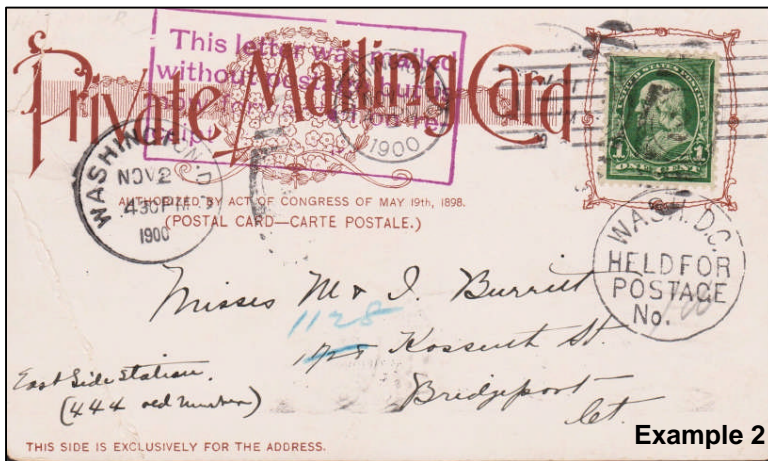 This letter was mailed
without
Private Mailing Card
1900
WASHINGTON, D.
NOV 2
430 PM
1900
AUTHORIZED BY ACT OF CONGRESS OF MAY 19th, 1898.
(POSTAL CARD—CARTE POSTALE.)
UNITED STATES POSTAGE
1 1
ONE CENT
WASH. D.C.
HELD FOR
POSTAGE
No.
Misses M & I. Burritt
1128
Kossuth St.
Bridgeport
Ct.
East Side Station.
(444 old number)
THIS SIDE IS EXCLUSIVELY FOR THE ADDRESS.
Example 2